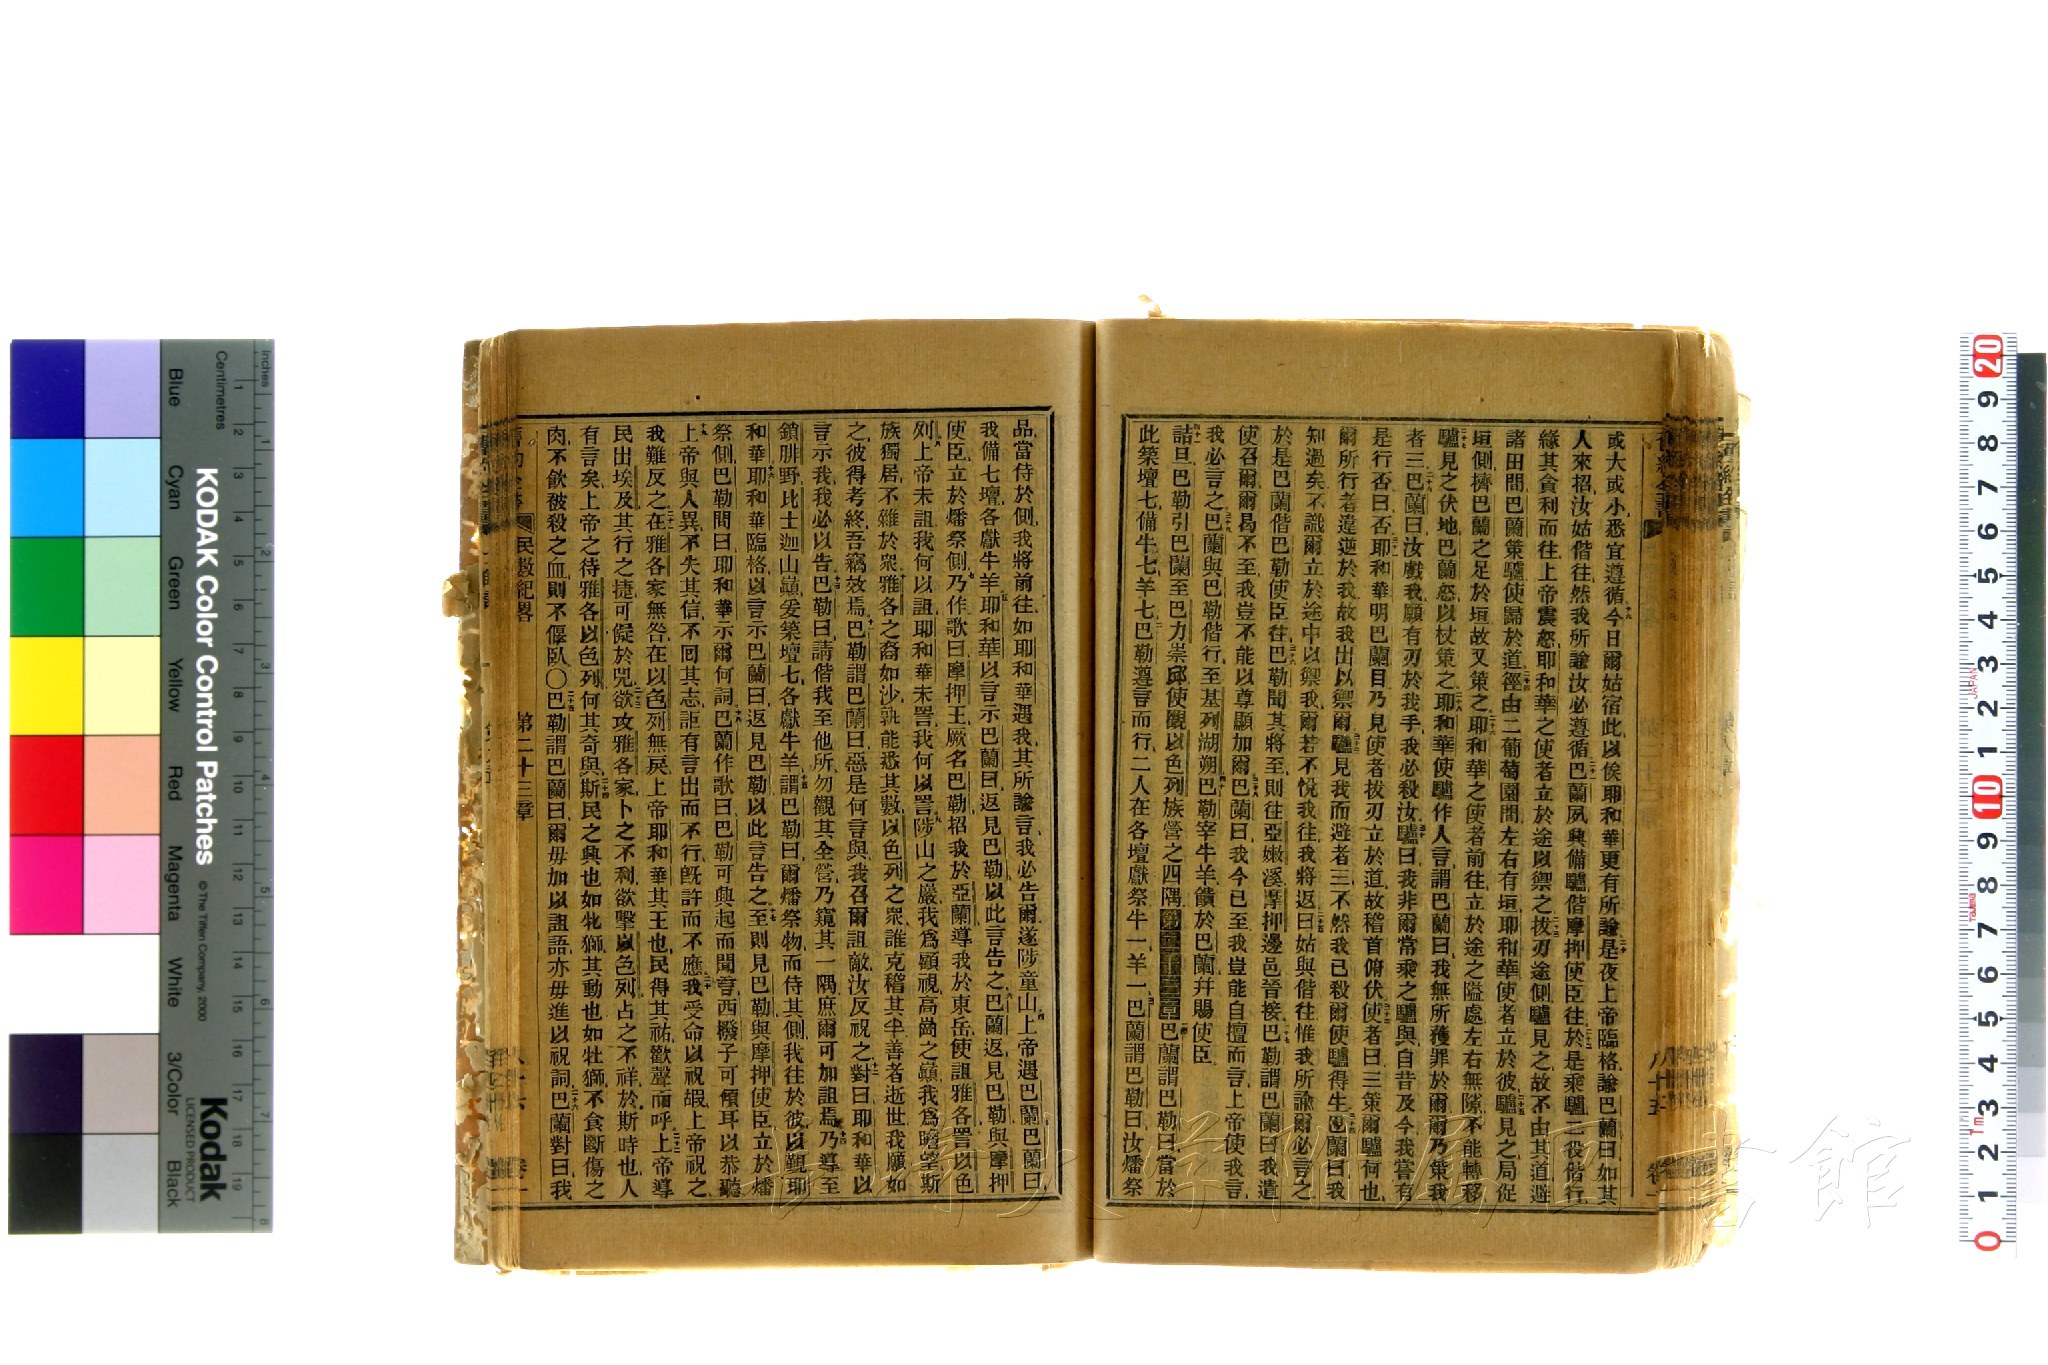 或大或小悉宜遵循今日爾姑宿此以俟耶和華更有所諭是夜上帝臨格諭巴蘭曰如其
人來招汝姑偕往然我所諭汝必遵循巴蘭夙興備驢偕摩押使臣往於是乘驢二役偕行
緣其貪利而往上帝震怒耶和華之使者立於途以禦之拔刃途側驢見之故不由其道避
諸田間巴蘭策驢使歸於道徑由二葡萄園間左右有垣耶和華使者立於彼驢見之局促
垣側擠巴蘭之足於垣故又策之耶和華之使者前往立於途之隘處左右無隙不能轉移
驢見之伏地巴蘭怒以杖策之耶和華使驢作人言謂巴蘭曰我無所獲罪於爾爾乃策我
者三巴蘭曰汝戲我願有刃於我手我必殺汝驢曰我非爾常乘之驢與自昔及今我嘗有
是行否曰否耶和華明巴蘭目乃見使者拔刃立於道故稽首俯伏使者曰三策爾驢何也
爾所行者違逆於我故我出以禦爾驢見我而避者三不然我已殺爾使驢得生巴蘭曰我
知過矣不識爾立於途中以禦我爾若不悅我往我將返曰姑與偕往惟我所諭爾必言之
於是巴蘭偕巴勒使臣往巴勒聞其將至則往亞嫩溪摩押邊邑晉接巴勒謂巴蘭曰我遣
使召爾爾曷不至我豈不能以尊顯加爾巴蘭曰我今已至我豈能自擅而言上帝使我言
我必言之巴蘭與巴勒偕行至基列胡朔巴勒宰牛羊饋於巴蘭幷賜使臣
詰旦巴勒引巴蘭至巴力崇邱使觀以色列族營之四隅第二十三章巴蘭謂巴勒曰當於
此築壇七備牛七羊七巴勒遵言而行二人在各壇獻祭牛一羊一巴蘭謂巴勒曰汝燔祭
八十五
品當侍於側我將前往如耶和華遇我其所諭言我必告爾遂陟童山上帝遇巴蘭巴蘭曰
我備七壇各獻牛羊耶和華以言示巴蘭曰返見巴勒以此言告之巴蘭返見巴勒與摩押
使臣立於燔祭側乃作歌曰摩押王厥名巴勒招我於亞蘭導我於東岳使詛雅各詈以色
列上帝未詛我何以詛耶和華未詈我何以詈陟山之巖我爲顧視高崗之巔我爲瞻望斯
族獨居不雜於衆雅各之裔如沙孰能悉其數以色列之衆誰克稽其半善者逝世我願如
之彼得考終吾竊效焉巴勒謂巴蘭曰惡是何言與我召爾詛敵汝反祝之對曰耶和華以
言示我我必以告巴勒曰請偕我至他所勿觀其全營乃窺其一隅庶爾可加詛焉乃導至
鎖腓野比士迦山巔爰築壇七各獻牛羊謂巴勒曰爾燔祭物而侍其側我往於彼以覲耶
和華耶和華臨格以言示巴蘭曰返見巴勒以此言告之至則見巴勒與摩押使臣立於燔
祭側巴勒問曰耶和華示爾何詞巴蘭作歌曰巴勒可興起而聞言西撥子可傾耳以恭聽
上帝與人異不失其信不回其志詎有言出而不行旣許而不應我受命以祝嘏上帝祝之
我難反之在雅各家無咎在以色列無戾上帝耶和華其王也民得其祐歡聲而呼上帝導
民出埃及其行之捷可儗於兕欲攻雅各家卜之不利欲擊以色列占之不祥於斯時也人
有言矣上帝之待雅各以色列何其奇與斯民之興也如牝獅其動也如牡獅不食斷傷之
肉不飲被殺之血則不偃臥〇巴勒謂巴蘭曰爾毋加以詛語亦毋進以祝詞巴蘭對曰我
民數紀畧 第二十三章 八十六 卷一
KODAK Color Control Patches
© The Tiffen Company, 2000
Kodak
LICENSED PRODUCT
Inches
Centimetres
Blue Cyan Green Yellow Red Magenta White 3/Color Black
長崎大学附属図書館
JAPAN